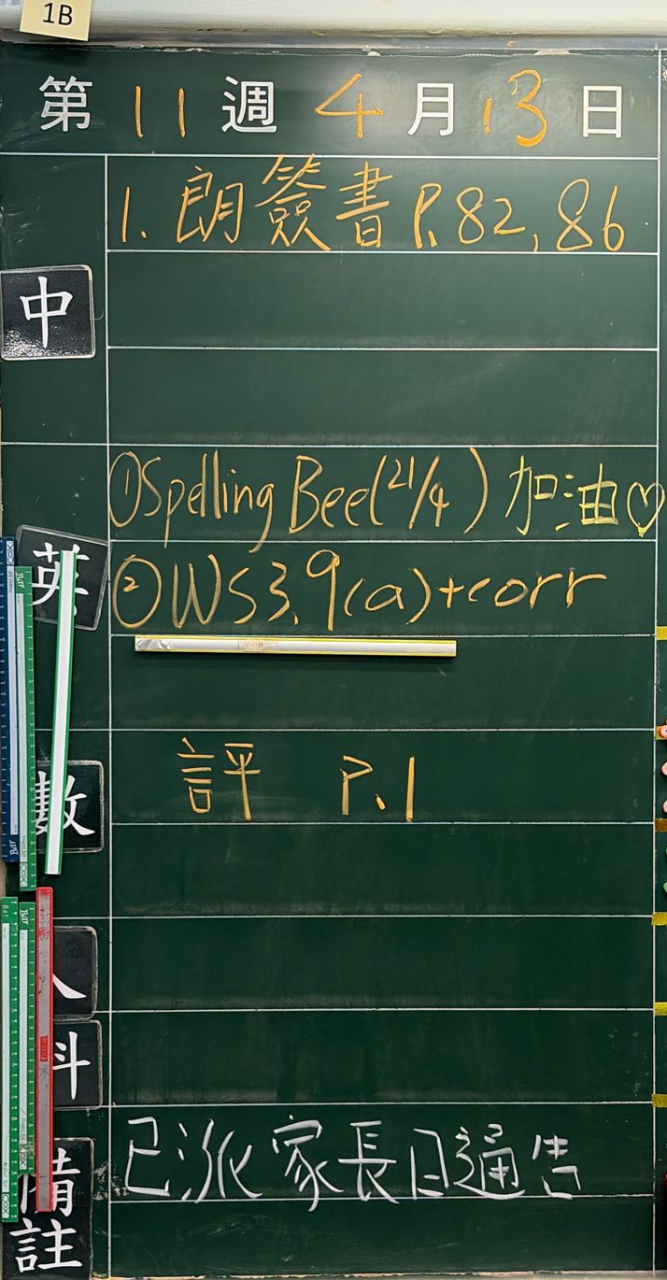 1B
第 11 週 4 月 13 日
中
1. 朗簽書 P.82, 86
英
①Spelling Bee(21/4) 加油♡
②WS3.9(a)+corr
數
評 P.1
人
科
備註
已派家長日通告